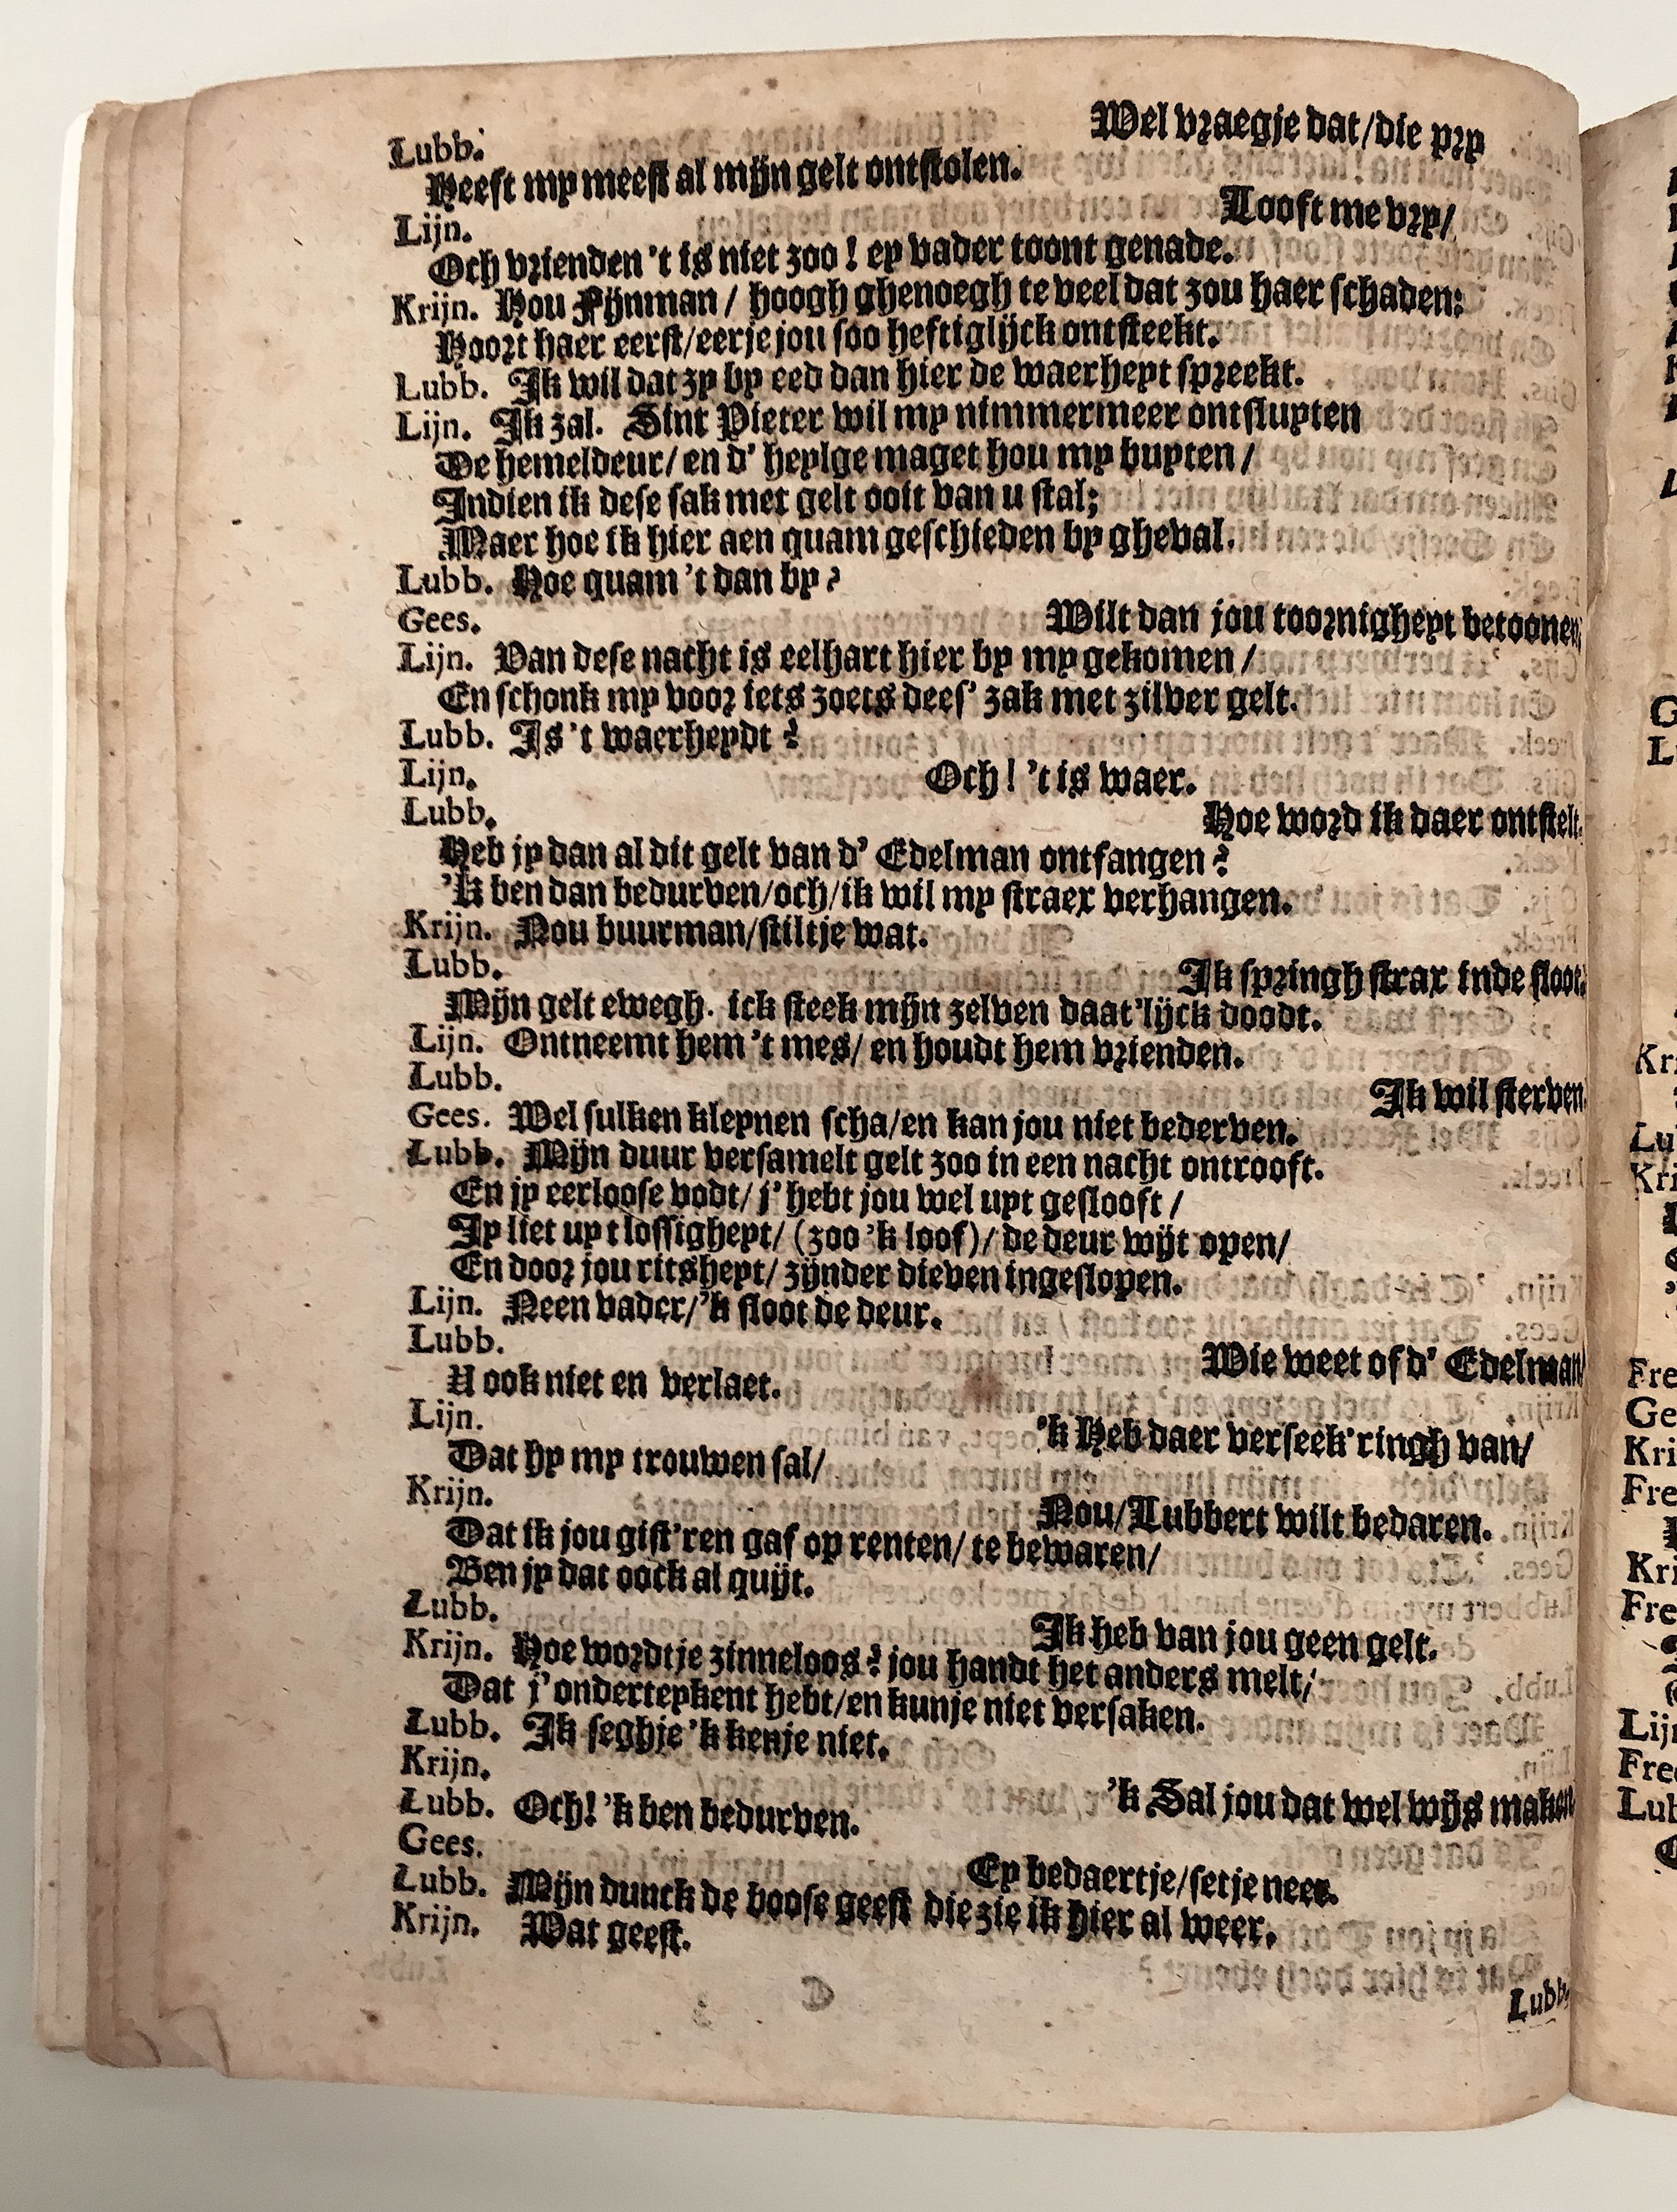 Lubb. Wel vraegje dat/die pry
Heeft my meest al mijn gelt ontstolen.
Lijn. Looft me vry/
Och vrienden 't is niet zoo! ey vader toont genade.
Krijn. Hou Fijnman/ hoogh ghenoegh te veel dat zou haer schaden:
Hoort haer eerst/eerje jou soo heftiglijck ontsteekt.
Lubb. Ik wil dat zy by eed dan hier de waerheyt spreekt.
Lijn. Ik zal. Sint Pieter wil my nimmermeer ontsluyten
De hemeldeur/ en d' heylge maget hou my buyten/
Indien ik dese sak met gelt ooit van u stal;
Maer hoe ik hier aen quam geschieden by gheval.
Lubb. Hoe quam 't dan by?
Gees. Wilt dan jou toornigheyt betoonen;
Lijn. Van dese nacht is eelhart hier by my gekomen/
En schonk my voor iets zoets dees' zak met zilver gelt.
Lubb. Is 't waerheydt?
Lijn. Och! 't is waer.
Lubb. Hoe word ik daer ontstelt.
Heb jy dan al dit gelt van d' Edelman ontfangen?
'k ben dan bedurven/och/ik wil my straex verhangen.
Krijn. Nou buurman/stiltje wat.
Lubb. Ik springh strax inde sloot.
Mijn gelt ewegh. ick steek mijn zelven daat'lijck doodt.
Lijn. Ontneemt hem 't mes/ en houdt hem vrienden.
Lubb. Ik wil sterven.
Gees. Wel sulken kleynen scha/en kan jou niet bederven.
Lubb. Mijn duur versamelt gelt zoo in een nacht ontrooft.
En jy eerloose vodt/ j' hebt jou wel uyt geslooft/
Jy liet uyt lossigheyt/ (zoo 'k loof)/ de deur wijt open/
En door jou ritsheyt/ zijnder dieven ingeslopen.
Lijn. Neen vader/'k sloot de deur.
Lubb. Wie weet of d' Edelman/
U ook niet en verlaet.
Lijn. 'k Heb daer verseek'ringh van/
Dat hy my trouwen sal/
Krijn. Nou/Lubbert wilt bedaren.
Dat ik jou gist'ren gaf op renten/ te bewaren/
Ben jy dat oock al quijt.
Lubb. Ik heb van jou geen gelt.
Krijn. Hoe wordtje zinneloos? jou handt het anders melt/
Dat j' onderteykent hebt/en kunje niet versaken.
Lubb. Ik seghje 'k kenje niet.
Krijn. 'k Sal jou dat wel wijs maken
Lubb. Och! 'k ben bedurven.
Gees. Ey bedaertje/setje neer.
Lubb. Mijn dunck de boose geest die zie ik hier al weer.
Krijn. Wat geest.
Lubb.